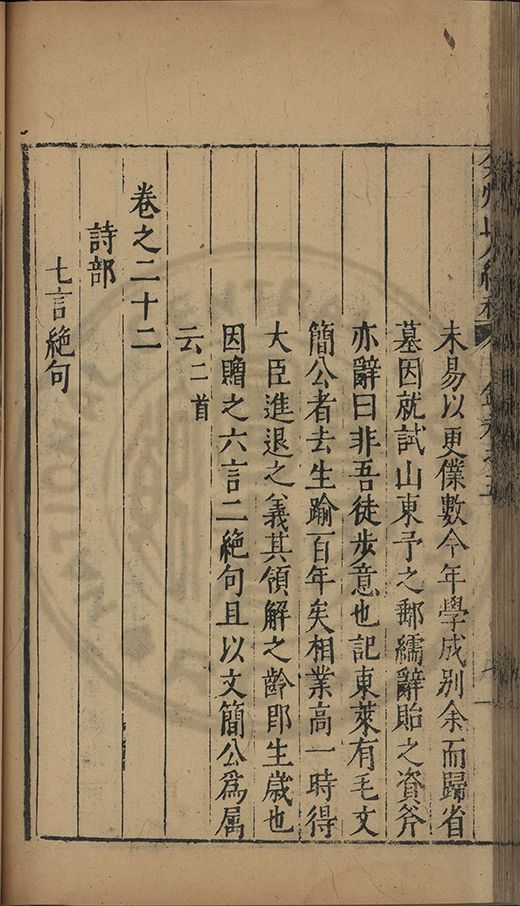 未易以更僕數今年學成別余而歸省
墓因就試山東予之郵繻辭貽之資斧
亦辭曰非吾徒步意也記東萊有毛文
簡公者去生踰百年矣相業高一時得
大臣進退之義其領解之齡卽生歲也
因贈之六言二絕句且以文簡公爲屬
云二首
卷之二十二
詩部
七言絕句